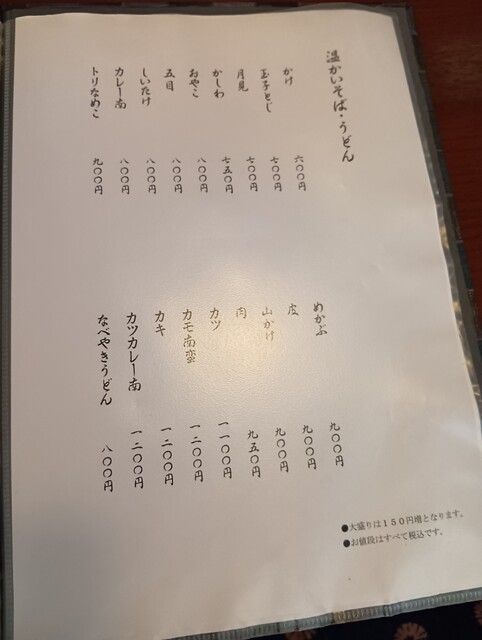 温かいそば・うどん
かけ 六〇〇円
玉子とじ 七〇〇円
月見 七〇〇円
かしわ 七五〇円
おやこ 八〇〇円
五目 八〇〇円
しいたけ 八〇〇円
カレー南 八〇〇円
トリなめこ 九〇〇円
めかぶ 九〇〇円
皮 九〇〇円
山かけ 九〇〇円
肉 九五〇円
カツ 一一〇〇円
カモ南蛮 一二〇〇円
カキ 一二〇〇円
カツカレー南 一二〇〇円
なべやきうどん 八〇〇円
●大盛りは１５０円増となります。
●お値段はすべて税込です。